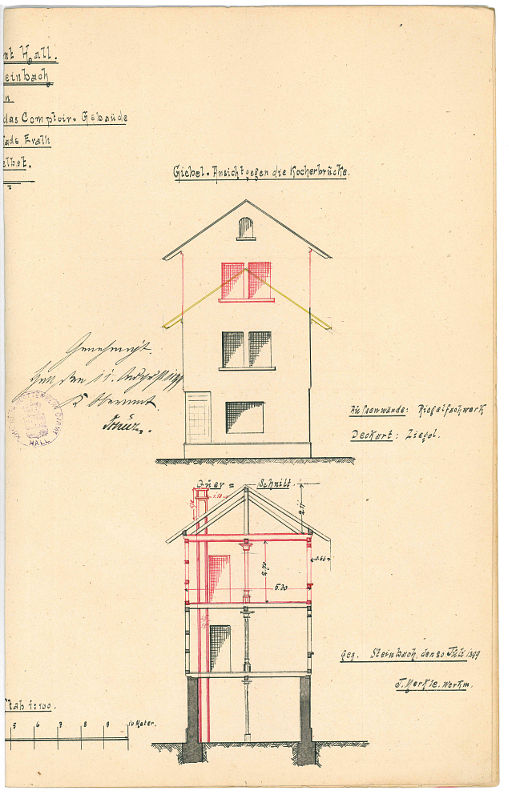 Hall.
einbach
n
das Comptoir-Gebäude
Erath
elbst.
Giebel-Ansicht gegen die Kocherbrücke.
Genehmigt.
Hall, den 11.
K. Oberamt.
HALL
Aussenwände: Riegelfachwerk
Deckart: Ziegel.
Quer = Schnitt.
5.30
Gez. Steinbach, den 20 Juli 1899
J. Merkle. Werkm.
stab 1:100.
5 6 7 8 9 10 Meter.